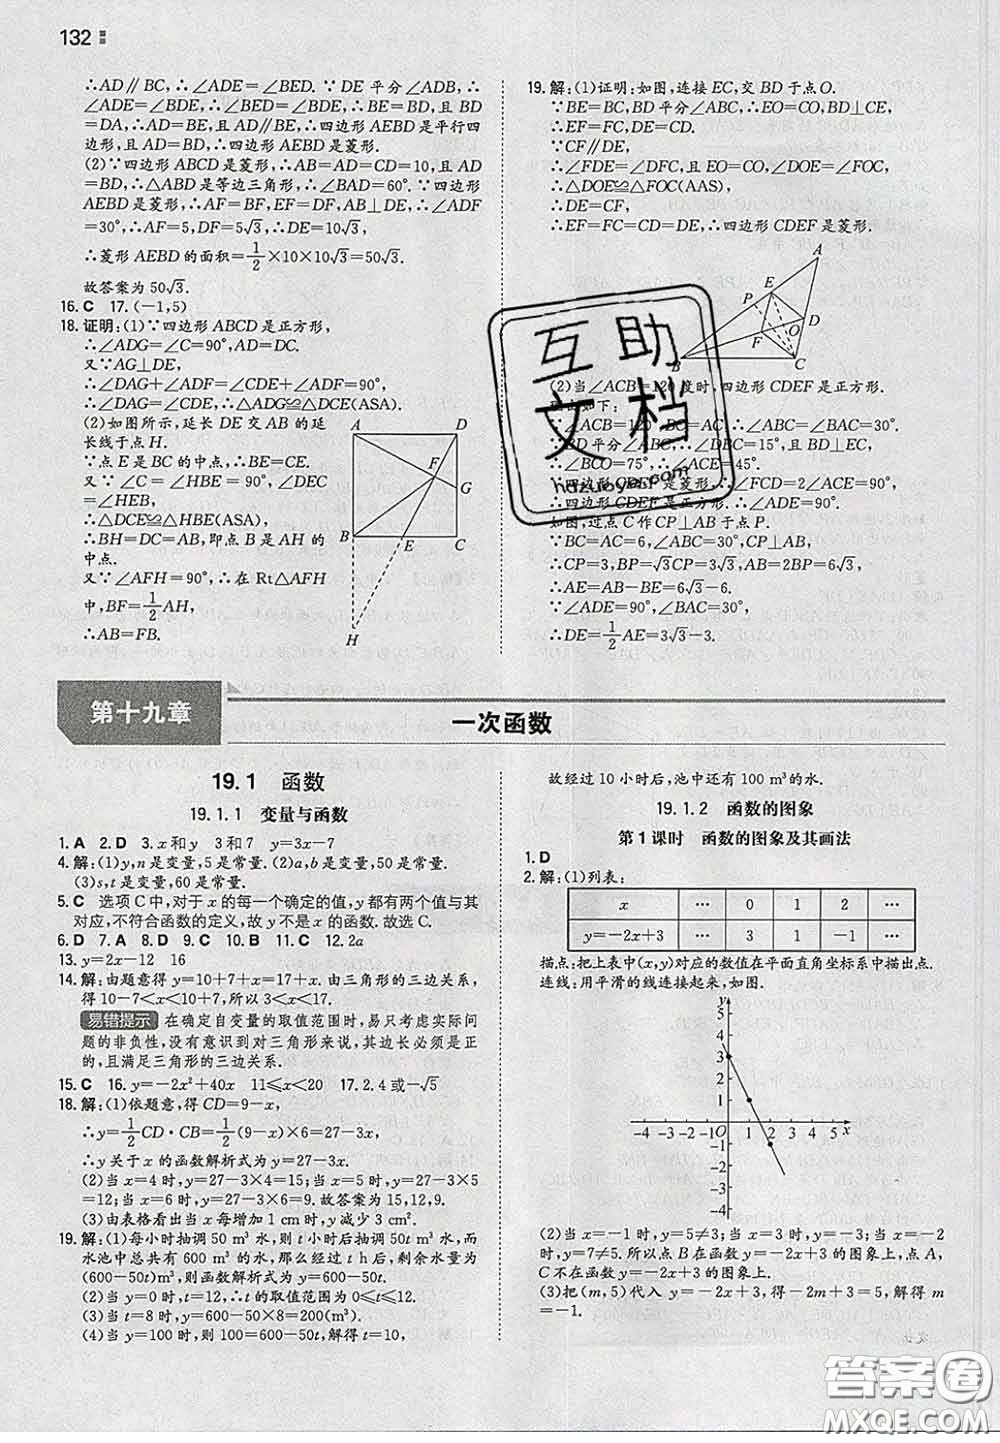 132
∴AD∥BC,∴∠ADE=∠BED.∵DE平分∠ADB,∴
∠ADE=∠BDE,∴∠BED=∠BDE,∴BD=BE,且BD
=DA,∴AD=BE,且AD∥BE,∴四边形AEBD是平行四
边形,且AD=BD,∴四边形AEBD是菱形.
(2)∵四边形ABCD是菱形,∴AB=AD=CD=10,且AD
=BD,∴△ABD是等边三角形,∴∠BAD=60°.∵四边形
AEBD是菱形,∴AF=BF,EF=DF,AB⊥DE,∴∠ADF
=30°,∴AF=5,DF=5√3,∴DE=10√3,
∴菱形AEBD的面积=1/2×10×10√3=50√3.
故答案为50√3.
16.C 17.(-1,5)
18.证明:(1)∵四边形ABCD是正方形,
∴∠ADG=∠C=90°,AD=DC.
又∵AG⊥DE,
∴∠DAG+∠ADF=∠CDE+∠ADF=90°,
∴∠DAG=∠CDE,∴△ADG≌△DCE(ASA).
(2)如图所示,延长DE交AB的延
长线于点H.
∵点E是BC的中点,∴BE=CE.
又∵∠C=∠HBE=90°,∠DEC
=∠HEB,
∴△DCE≌△HBE(ASA),
∴BH=DC=AB,即点B是AH的
中点.
又∵∠AFH=90°,∴在Rt△AFH
中,BF=1/2AH,
∴AB=FB.
A D F G B E C H
19.解:(1)证明:如图,连接EC,交BD于点O.
∵BE=BC,BD平分∠ABC,∴EO=CO,BD⊥CE,
∴EF=FC,DE=CD.
∵CF∥DE,
∴∠FDE=∠DFC,且EO=CO,∠DOE=∠FOC,
∴△DOE≌△FOC(AAS),
∴DE=CF,
∴EF=FC=CD=DE,∴四边形CDEF是菱形.
A E P D O F B C
(2)当∠ACB=120度时,四边形CDEF是正方形.
理由如下:
∵∠ACB=120°,BC=AC,∴∠ABC=∠BAC=30°.
∵BD平分∠ABC,∴∠DBC=15°,且BD⊥EC,
∴∠BCO=75°,∴∠ACE=45°.
∵四边形CDEF是菱形,∴∠FCD=2∠ACE=90°,
∴四边形CDEF是正方形.∴∠ADE=90°.
如图,过点C作CP⊥AB于点P.
∵BC=AC=6,∠ABC=30°,CP⊥AB,
∴CP=3,BP=√3CP=3√3,AB=2BP=6√3,
∴AE=AB-BE=6√3-6.
∵∠ADE=90°,∠BAC=30°,
∴DE=1/2AE=3√3-3.
互助
文档
hdzuoye.com
第十九章
一次函数
19.1 函数
19.1.1 变量与函数
1.A 2.D 3.x和y 3和7 y=3x-7
4.解:(1)y,n是变量,5是常量.(2)a,b是变量,50是常量.
(3)s,t是变量,60是常量.
5.C 选项C中,对于x的每一个确定的值,y都有两个值与其
对应,不符合函数的定义,故y不是x的函数.故选C.
6.D 7.A 8.D 9.C 10.B 11.C 12.2a
13.y=2x-12 16
14.解:由题意得y=10+7+x=17+x.由三角形的三边关系,
得10-7<x<10+7,所以3<x<17.
易错提示 在确定自变量的取值范围时,易只考虑实际问
题的非负性,没有意识到对三角形来说,其边长必须是正的,
且满足三角形的三边关系.
15.C 16.y=-2x²+40x 11≤x<20 17.2,4或-√5
18.解:(1)依题意,得CD=9-x,
∴y=1/2CD·CB=1/2(9-x)×6=27-3x,
∴y关于x的函数解析式为y=27-3x.
(2)当x=4时,y=27-3×4=15;当x=5时,y=27-3×5
=12;当x=6时,y=27-3×6=9.故答案为15,12,9.
(3)由表格看出当x每增加1 cm时,y减少3 cm².
19.解:(1)每小时抽调50 m³水,则t小时后抽调50t m³水,而
水池中总共有600 m³的水,那么经过t h后,剩余水量为
(600-50t)m³,则函数解析式为y=600-50t.
(2)当y=0时,t=12,∴t的取值范围为0≤t≤12.
(3)当t=8时,y=600-50×8=200(m³).
(4)当y=100时,则100=600-50t,解得t=10,
故经过10小时后,池中还有100 m³的水.
19.1.2 函数的图象
第1课时 函数的图象及其画法
1.D
2.解:(1)列表:
x … 0 1 2 …
y=-2x+3 … 3 1 -1 …
描点:把上表中(x,y)对应的数值在平面直角坐标系中描出点.
连线:用平滑的线连接起来,如图.
y
5
4
3
2
1
-4 -3 -2 -1 O 1 2 3 4 5 x
-1
-2
-3
-4
(2)当x=-1时,y=5≠3;当x=3时,y=-3;当x=-2
时,y=7≠5.所以点B在函数y=-2x+3的图象上,点A,
C不在函数y=-2x+3的图象上.
(3)把(m,5)代入y=-2x+3,得-2m+3=5,解得m
=-1.
答案圈
MXQE.COM